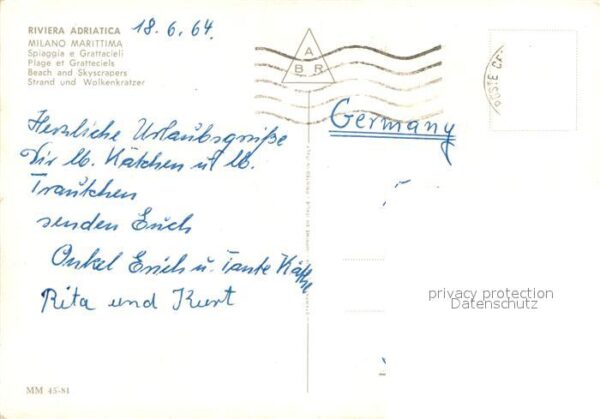 RIVIERA ADRIATICA
MILANO MARITTIMA
Spiaggia e Grattacieli
Plage et Gratteciels
Beach and Skyscrapers
Strand und Wolkenkratzer
18.6.64.
A
B R
Germany
Herzliche Urlaubsgrüße
Dir lb. Kätchen u lb.
Trautchen
senden Euch
Onkel Erich u. Tante Käthe
Rita und Kurt
privacy protection
Datenschutz
MM 45-81